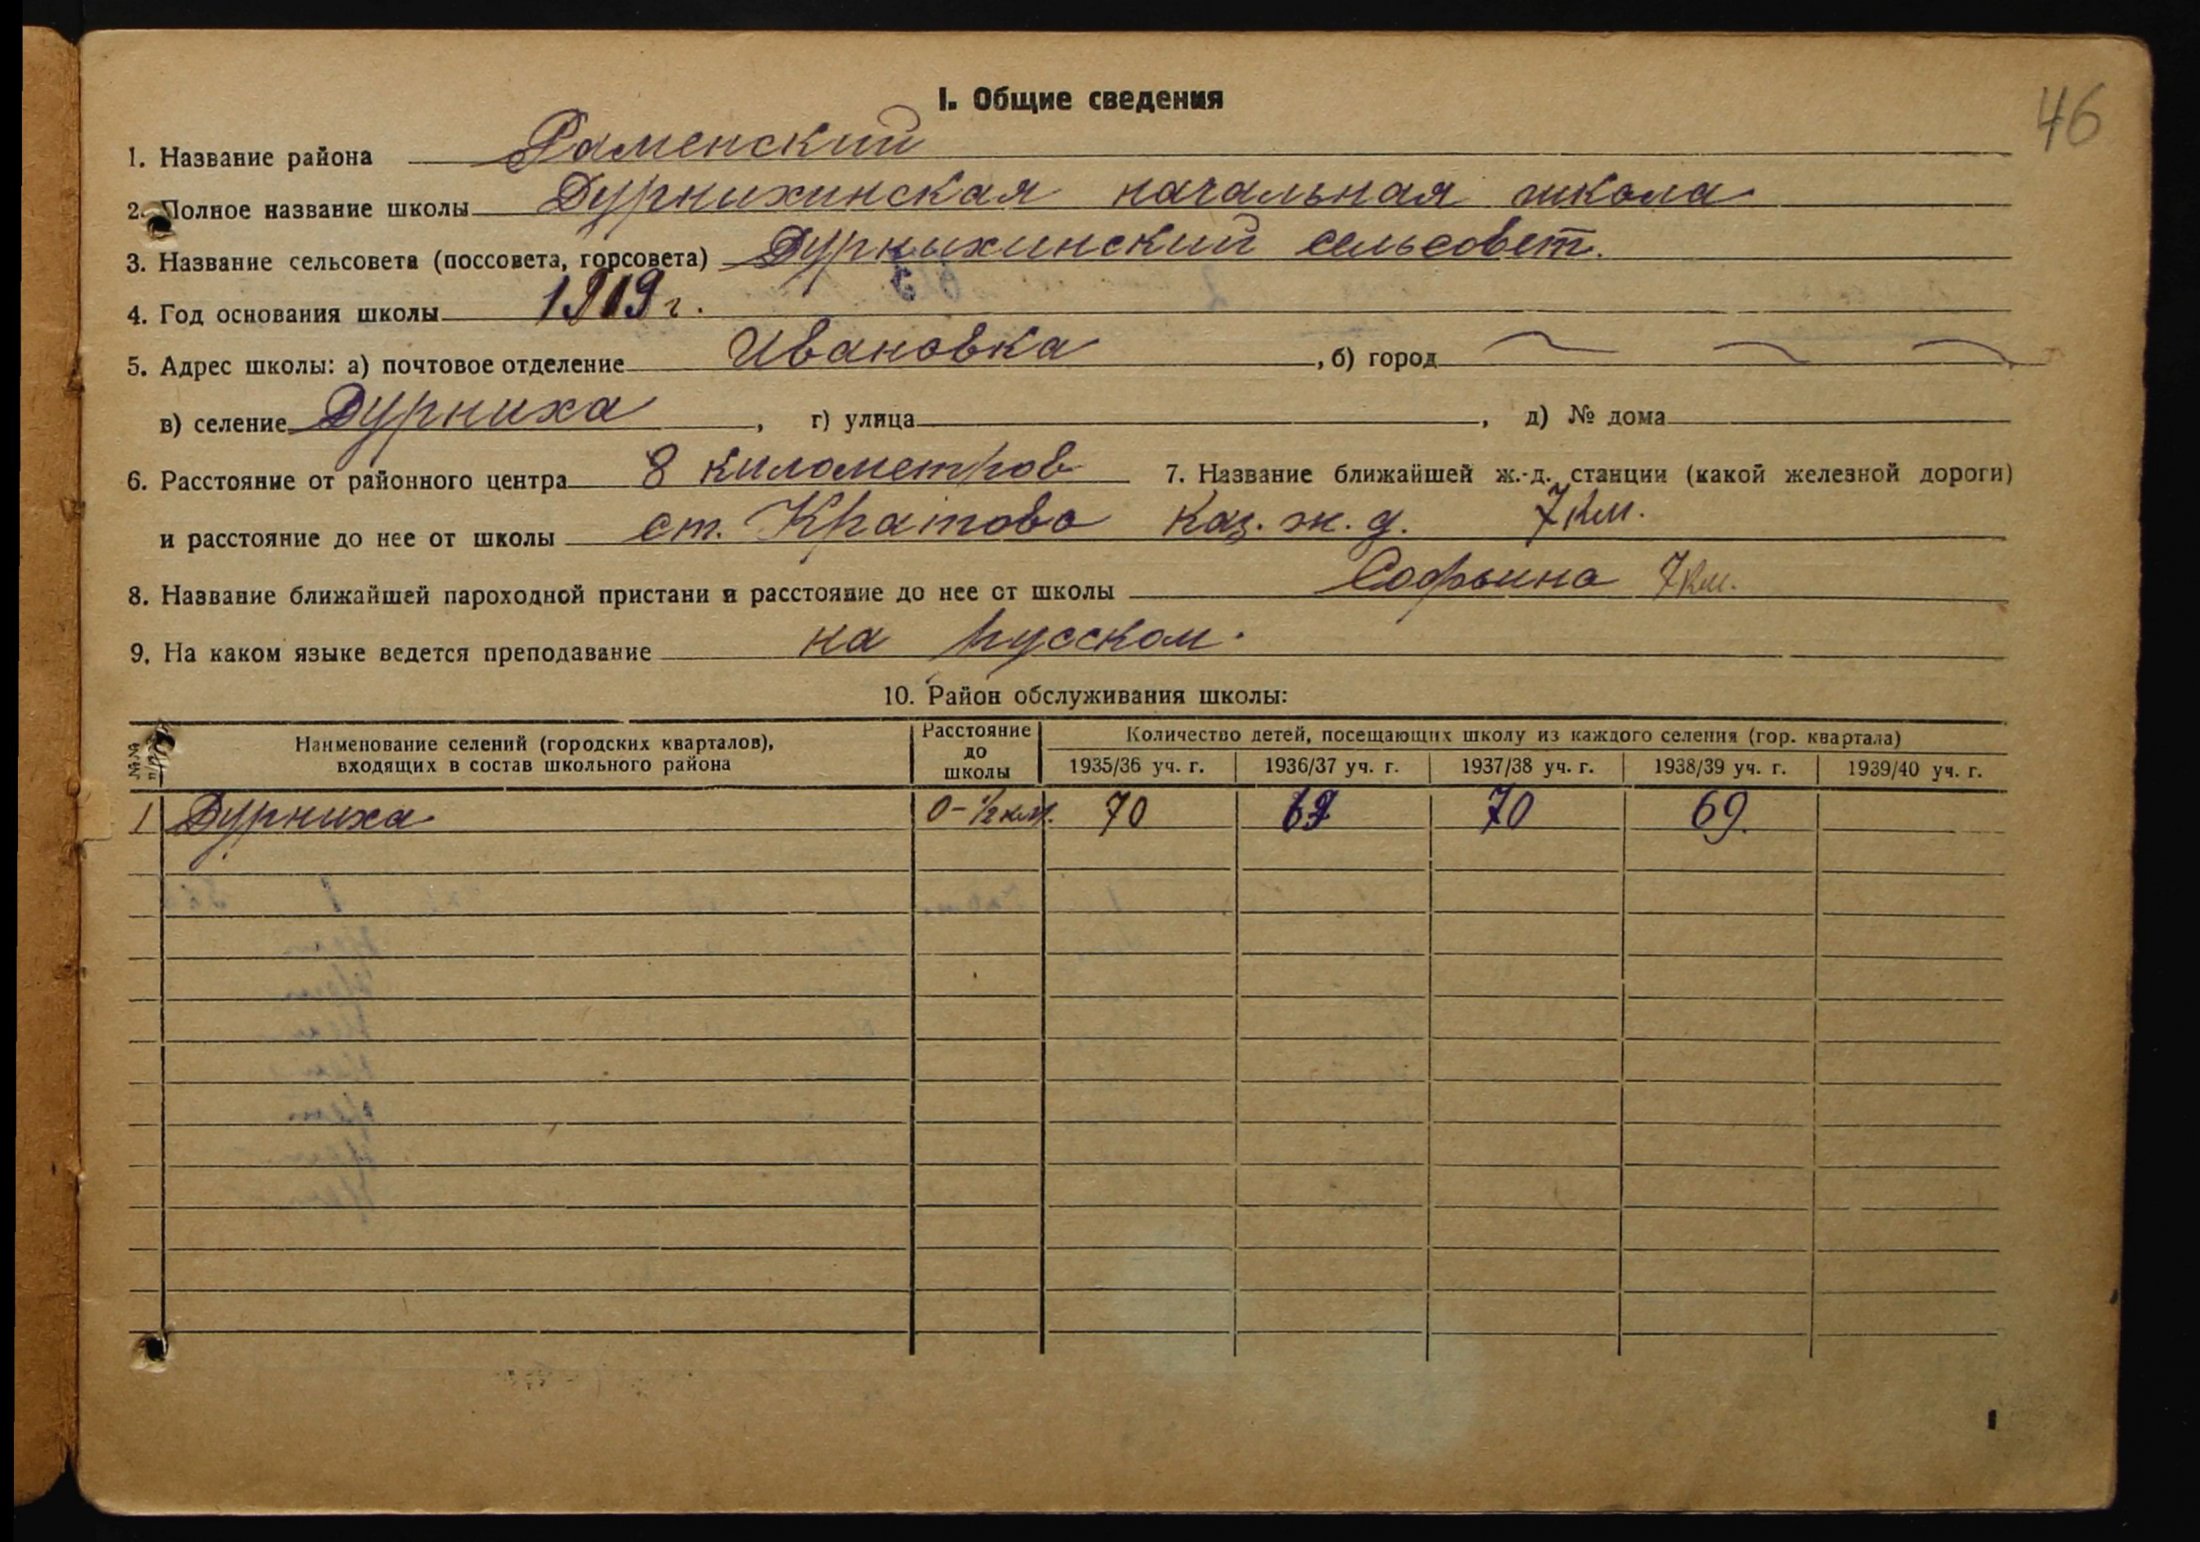 46
I. Общие сведения
1. Название района Раменский
2. Полное название школы Дурнихинская начальная школа
3. Название сельсовета (поссовета, горсовета) Дурнихинский сельсовет.
4. Год основания школы 1919 г.
5. Адрес школы: а) почтовое отделение Ивановка, б) город
в) селение Дурниха, г) улица, д) № дома
6. Расстояние от районного центра 8 километров 7. Название ближайшей ж.-д. станции (какой железной дороги)
и расстояние до нее от школы ст. Кратово Каз. ж. д. 7 км.
8. Название ближайшей пароходной пристани и расстояние до нее от школы Софьино 7 км.
9. На каком языке ведется преподавание на русском.
10. Район обслуживания школы:
№№ п/п Наименование селений (городских кварталов), Расстояние до школы Количество детей, посещающих школу из каждого селения (гор. квартала)
входящих в состав школьного района 1935/36 уч. г. 1936/37 уч. г. 1937/38 уч. г. 1938/39 уч. г. 1939/40 уч. г.
1 Дурниха 0–½ км. 70 70 69.
1